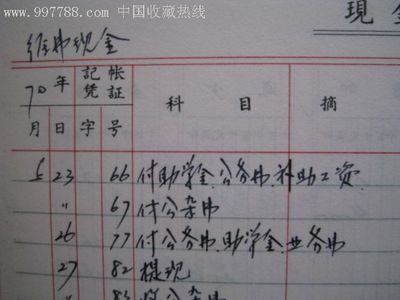 www.997788.com 中国收藏热线
現金
经费现金
70年 記帳凭証 科目 摘
月 日 字 号
5 23 66 付助学金.公务费.补助工资.
〃 67 付公杂费
26 77 付公务费.助学金.业务费
27 82 提现
〃 83 公杂费